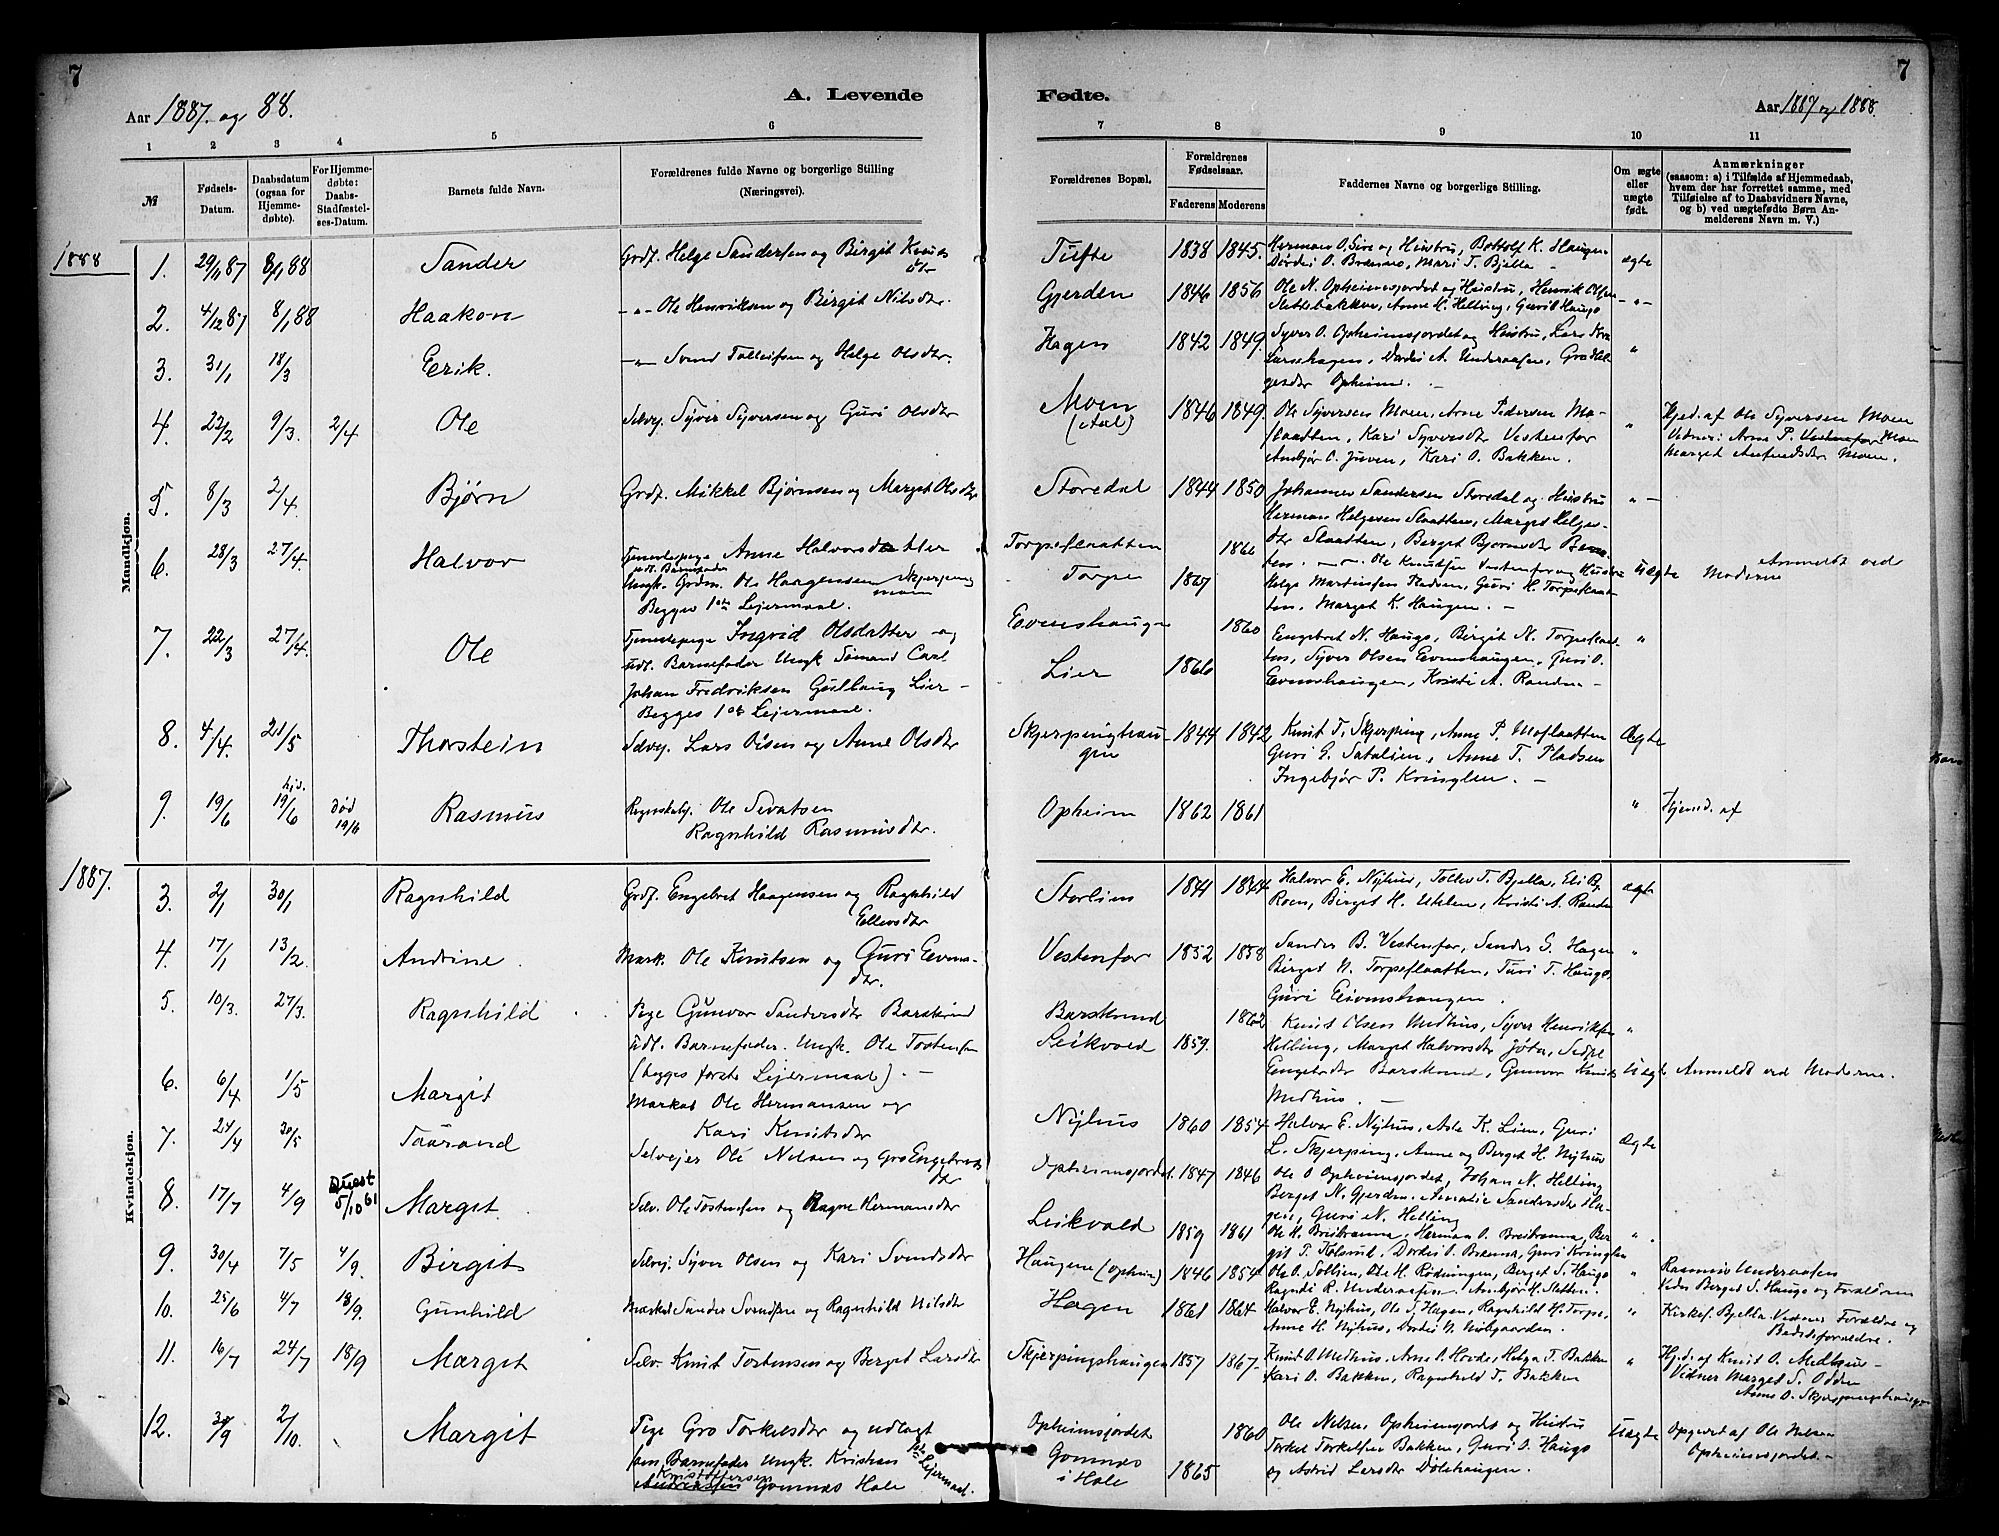 7
7
Aar 1887. og 88.
A. Levende
Fødte.
Aar 1887 og 1888.
1 2 3 4 5 6
7 8 9 10 11
№
Fødsels-Datum.
Daabsdatum (ogsaa for Hjemme-døbte).
For Hjemme-døbte: Daabs-Stadfæstel-ses-Datum.
Barnets fulde Navn.
Forældrenes fulde Navne og borgerlige Stilling
(Næringsvei).
Forældrenes Bopæl.
Forældrenes Fødselsaar.
Faderens Moderens
Faddernes Navne og borgerlige Stilling.
Om ægte eller uægte født.
Anmærkninger
(saasom: a) i Tilfælde af Hjemmedaab,
hvem der har forrettet samme, med
Tilføielse af to Daabsvidners Navne,
og b) ved uægtefødte Børn An-
melderens Navn m. V.)
Mandkjøn.
1888
1. 29/11 87 8/1 88 Sander Grdf. Helge Sandersen og Birgit Knuts dtr
Tufte 1838 1845. Herman O. Sire og Hustru, Bottolf K. Haugen
Dordei O. Brænno, Mari T. Bjella - ægte
2. 4/12 87 8/1 88 Haakon -"- Ole Henriksen og Birgit Nilsdtr.
Gjerden 1846 1856 Ole N. Opheimsjordet og Hustru, Henrik Olsen
Slettebakken, Anne H. Helling, Guril Haugo -"-
3. 31/1 18/3 Erik. -"- Svend Tolleifsen og Helge Olsdtr.
Hagen 1842 1849. Syver O. Opheimsjordet og Hustru, Lars
Larshagen, Dordei A. Underaasen, Gro Hel-
gesdtr Opheim. - "
4. 22/2 9/3. 2/4 Ole Selvej. Syver Syversen og Guri Olsdtr
Moen (Aal) 1846 1849. Ole Syversen Moen, Arne Pedersen Mo-
slaatten, Kari Syversdtr Vestenfor
Ambjør O. Juven, Kari O. Bakken. "
Hjed. af Ole Syversen Moen
Vidner: Arne P. Vestenfor Moen
Marget Moen.
5. 8/3 2/4. Bjørn Grdf. Mikkel Bjørnsen og Marget Olsdtr
Storedal 1844 1850 Johannes Sandersen Storedal og Hustru
Herman Helgesen Slaatten, Marget Helges-
dtr Slaatten, Berget Bjørnsdtr "-
6. 28/3 27/4. Halvor Tjenestepige Anne Halvorsdatter
udl. Barnefader
Ungk. Grdm. Ole Haagensen Skjerping
Begges 1ste Lejermaal.
Torpeslaatten 1866
Torpe 1867
Ole Knudsen Vestenfor og Hustru
Helge Martinsen Pladsen, Guri H. Torpeslaat-
ten, Marget K. Haugen. - Uægte Anmeldt ved Moderne
7. 22/3 27/4. Ole Tjenestepige Ingrid Olsdatter og
udl. Barnefader Ungk. Sømand Carl
Johan Fredriksen Gullaug Lier -
Begges 1ste Lejermaal.
Eivinshaugen 1860
Lier 1866
Engebret N. Haugo, Birgit N. Torpeslaat-
ten, Syver Olsen Eivinshaugen, Guri O.
Eivinshaugen, Kristi A. Randen - "
8. 4/4. 21/5 Thorstein Selvej. Lars Olsen og Anne Olsdtr
Skjerpinghaugen 1844 1842 Knut T. Skjerping, Anne P. Moslaatten
Guri E. Sataslien, Anne T. Pladsen
Ingebjør P. Kringlen. - Ægte
9. 19/6 hjd. 19/6 død 19/6 Rasmus Regnskabsf. Ole Sevatsen
Ragnhild Rasmusdtr.
Opheim 1862 1861 " Hjemd. af
Kvindekjøn.
1887.
3. 2/1 30/1 Ragnhild Grdf. Engebret Haagensen og Ragnhild
Ellevsdtr
Storlien 1841 1844 Halvor E. Nyhus, Tollev T. Bjella, Eli
Roen, Birget H. Uhlen, Kristi A. Randen ægte
4. 17/1 13/2. Andrine. Mark. Ole Knutsen og Guri Eivins-
dtr.
Vestenfor 1852 1858 Sander B. Vestenfor, Sander S. Hagen
Birget N. Torpeslaatten, Turi T. Haugo,
Guri Eivinshaugen. "
5. 10/3. 27/3. Ragnhild Pige Gunvor Sandersdtr Barskrind
udl. Barnefader. Ungk. Ole Tostensen
(begges første Lejermaal). -
Barskrind 1862
Leikvold 1859.
Knut Olsen Medhus, Syver Henriksen
Helling, Marget Halvorsdtr Jøtn,
Engebretsdtr Barskrind, Gunvor Knutsdtr
Medhus. - Uægte Anmeldt ved Moderne.
6. 6/4 1/5 Margit Markas Ole Hermansen og
Kari Knutsdtr
Nyhus 1860 1854 Halvor E. Nyhus, Asle K. Lien, Guri
L. Skjerping, Anne og Berget H. Nyhus Ægte
7. 24/4 30/5 Taarand Selvejer Ole Nelsen og Gro Engebrets
dtr
Opheimsjordet 1847 1846 Ole O Opheimsjordet, Johan N. Helling
Berget N. Gjerden, Sandersdtr Ha-
gen, Guri N. Helling
8. 17/7 4/9 Attest 5/10 61 Margit. Selv. Ole Tostensen og Ragne Hermansdtr
Leikvold 1859 1861 Ole H. Breibrænna, Herman O. Breibrænna, Ber-
git T. Kolsrud, Dordei O. Brænna, Guri Kringlen "
9. 30/4 7/5 4/9. Birgit Selvej. Syver Olsen og Kari Svendsdtr
Haugene (Opheim) 1846 1854 Ole O. Solbjen, Ole H. Rødningen, Berget S. Haugo
Ragndi R. Underaasen, Ambjør H. Sletten. "
Rasmus Underaasen
Vidn. Berget S. Haugo og Forældrene
10. 25/6 4/7 18/9. Gunhild Markas Sander Svendsen og Ragnhild Nilsdtr
Hagen 1861 1864 Halvor E. Nyhus, Ole S. Hagen, Ragnhild H. Torpe,
Anne H. Nyhus, Dordei N. Nibgaarden. "
Kirkes. Bjella Vidner Forældre og
Bedsteforældre.
11. 16/7 24/7 18/9 Margit Selv. Knut Tostensen og Berget Larsdtr
Skjerpingshaugen 1857 1867 Knut O. Medhus, Arne O. Hovde, Helga T. Bakken
Kari O. Bakken, Ragnhild T. Bakken "
Hjd. af Knut O. Medhus -
Vidner Marget S. Odden
Anne O. Skjerpingshaugen
12. 30/9 2/10. Margit Pige Gro Torkelsdtr og udlagt
som Barnefader Ungk. Kristian
Kristoffersen
Andersen Gomnæs Hole 1ste Lejermaal.
Opheimsjordet 1860
Gomnæs i Hole 1865
Ole Nelsen Opheimsjordet og Hustru
Torkel Torkelsen Bakken, Guri O. Haugo
og Astrid Larsdtr Dølehaugen. Uægte
Opgivet af Ole Nelsen
Opheimsjordet. -